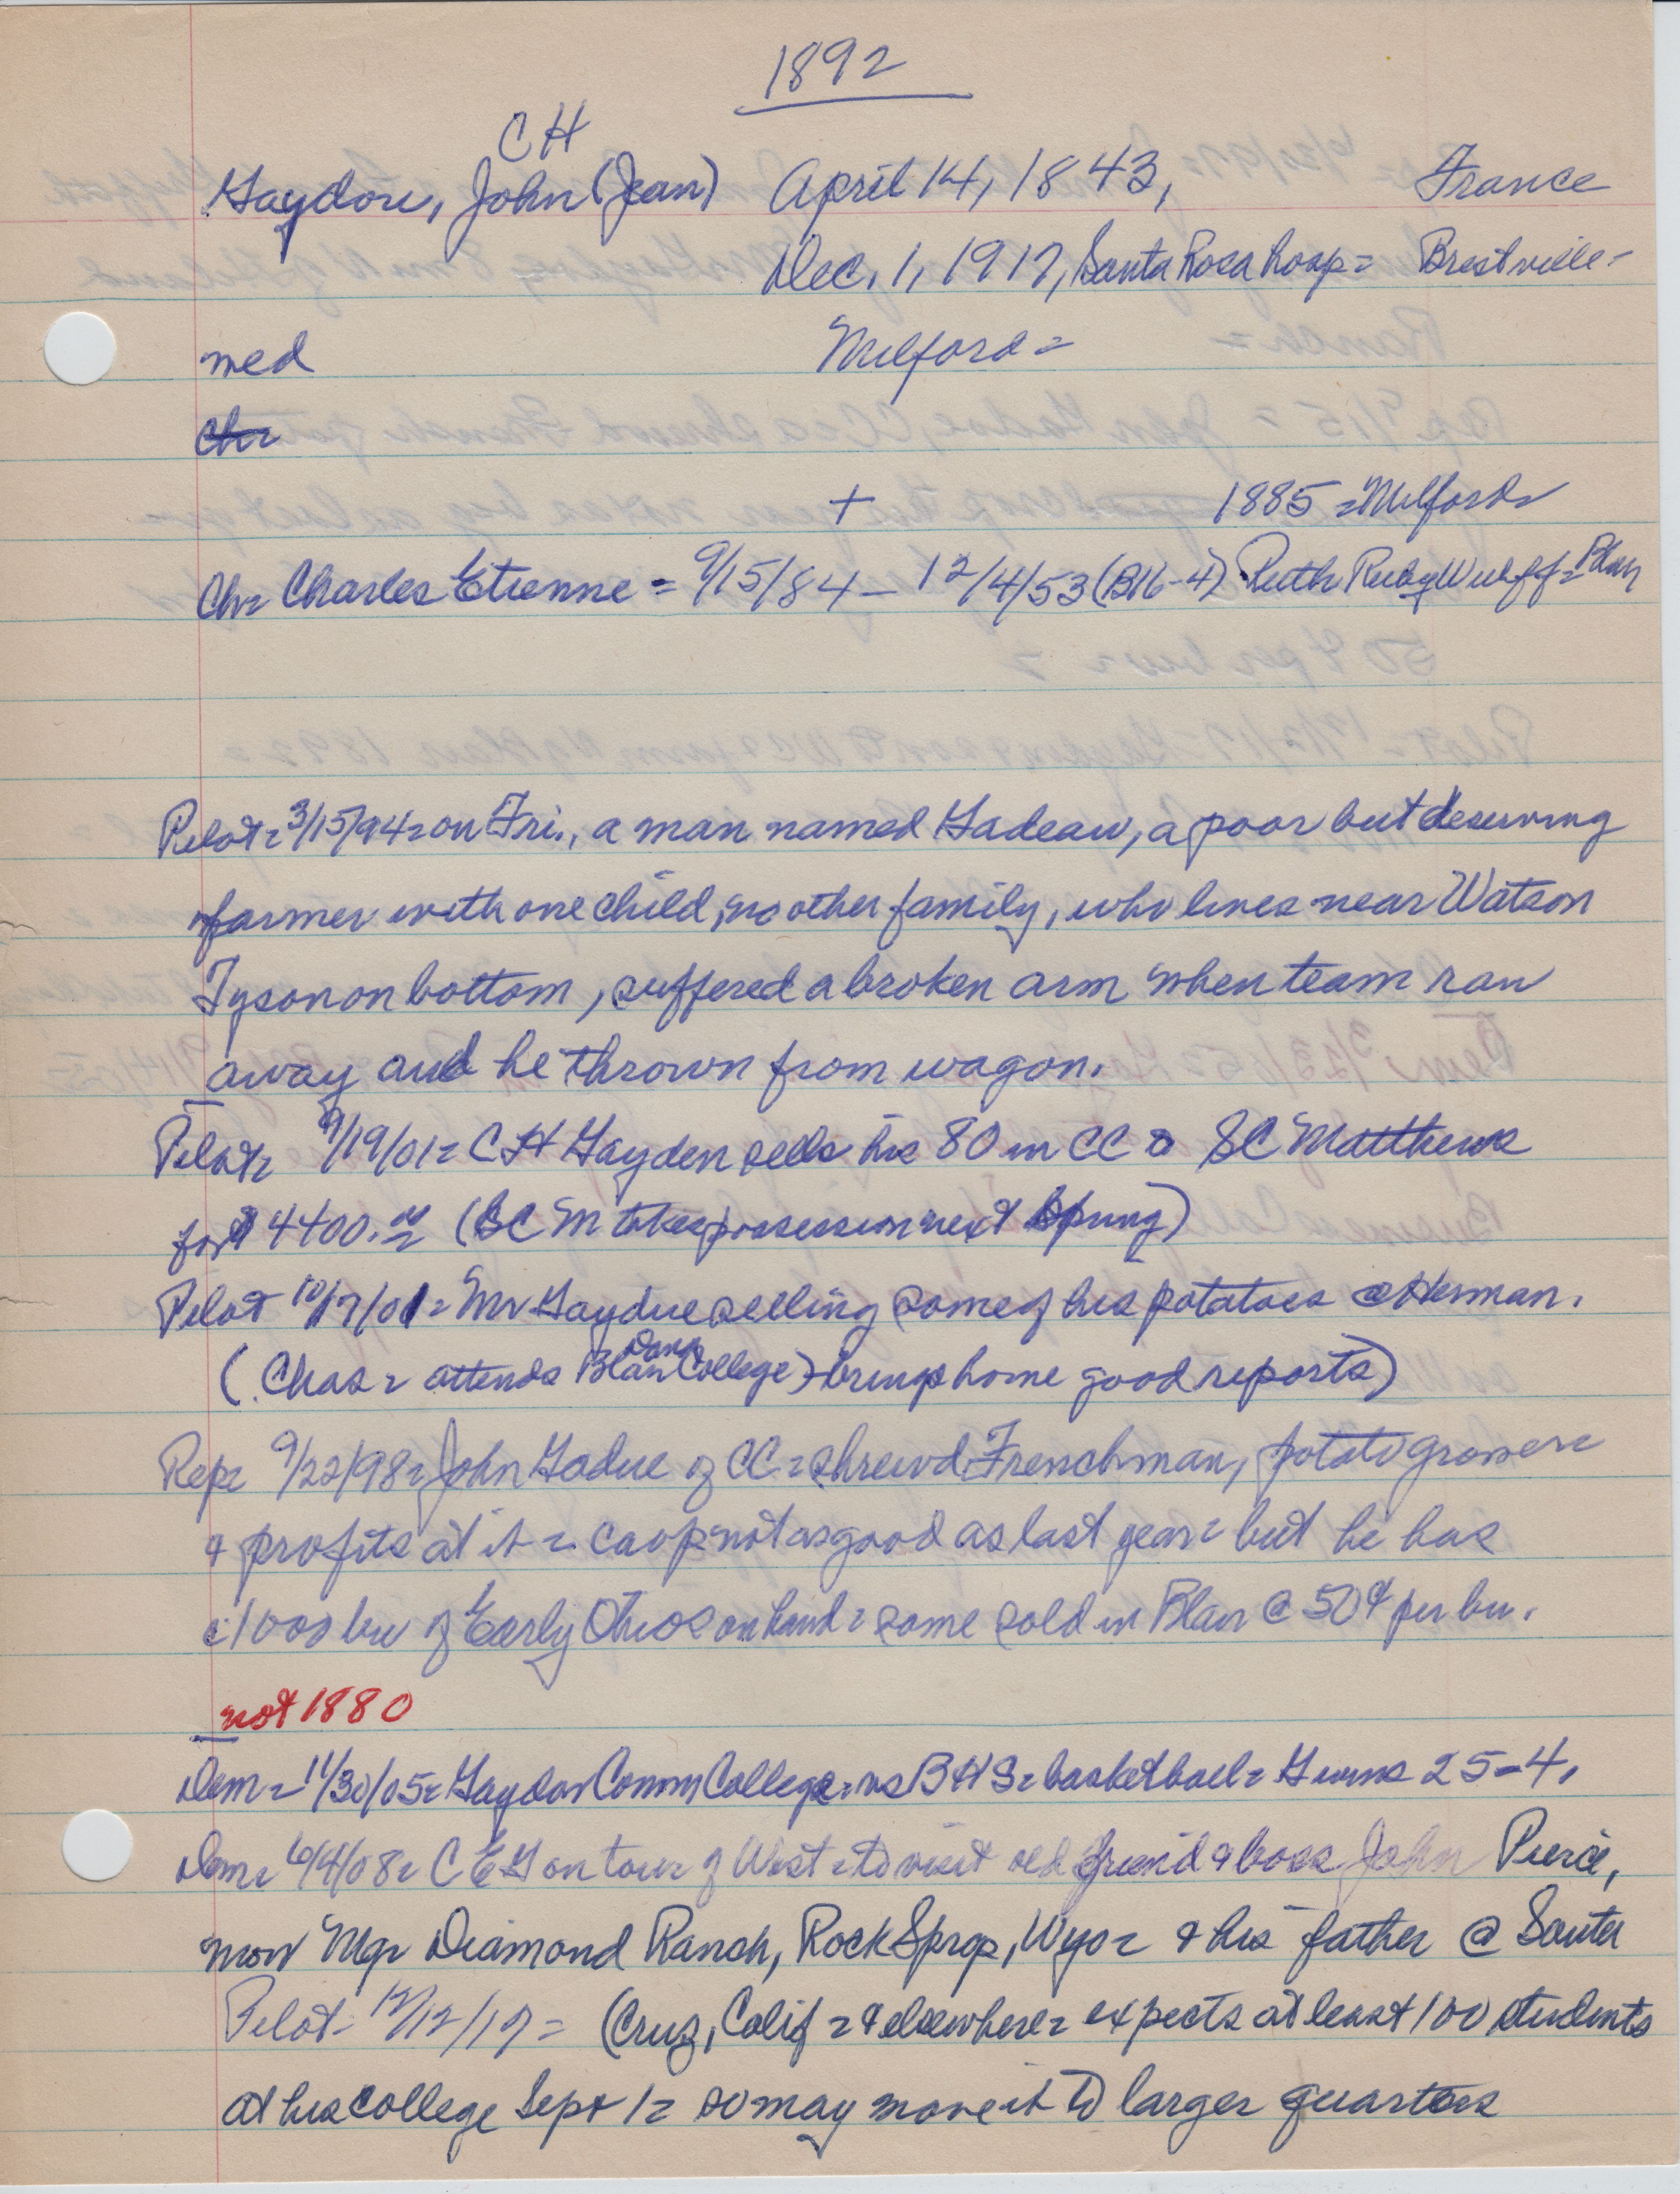 1892
CH
Gaydou, John (Jean) April 14, 1843, France
Dec. 1, 1917, Santa Rosa hosp= Brestville-
med Milford=
Ch=
+ 1885 = Milford=
Ch= Charles Etienne = 9/15/84 - 12/4/53 (B16-4) Ruth Ruby Wulff = Blair
Pilot= 3/15/94= on Fri., a man named Gadeau, a poor but deserving
farmer with one child, no other family, who lives near Watson
Tyson on bottom, suffered a broken arm when team ran
away and he thrown from wagon.
Pilot= 9/19/01= CH Gayden sells his 80 in CC to SC Matthews
for $4400.00 (SC M takes possession next Spring)
Pilot 10/17/01= Mr Gaydue selling some of his potatoes @ Herman.
(Chas= attends Blair Dana College) brings home good reports)
Rep= 9/22/98= John Gadue of CC= shrewd Frenchman, potato grower=
& profits at it = crop not as good as last year= but he has
c. 1000 bu of Early Ohios on hand= some sold in Blair @ 50¢ per bu.
not 1880
Dem= 11/30/05= Gaydou Comm College vs BHS= basketball= G wins 25-4.
Dem= 6/4/08= C E G on tour of West= to visit old friend & boss John Pierce,
now Mgr Diamond Ranch, Rock Sprgs, Wyo= & his father @ Santa
Pilot- 12/12/17= (Cruz, Calif= & elsewhere= expects at least 100 students
at his college Sept 1= so may move it to larger quarters